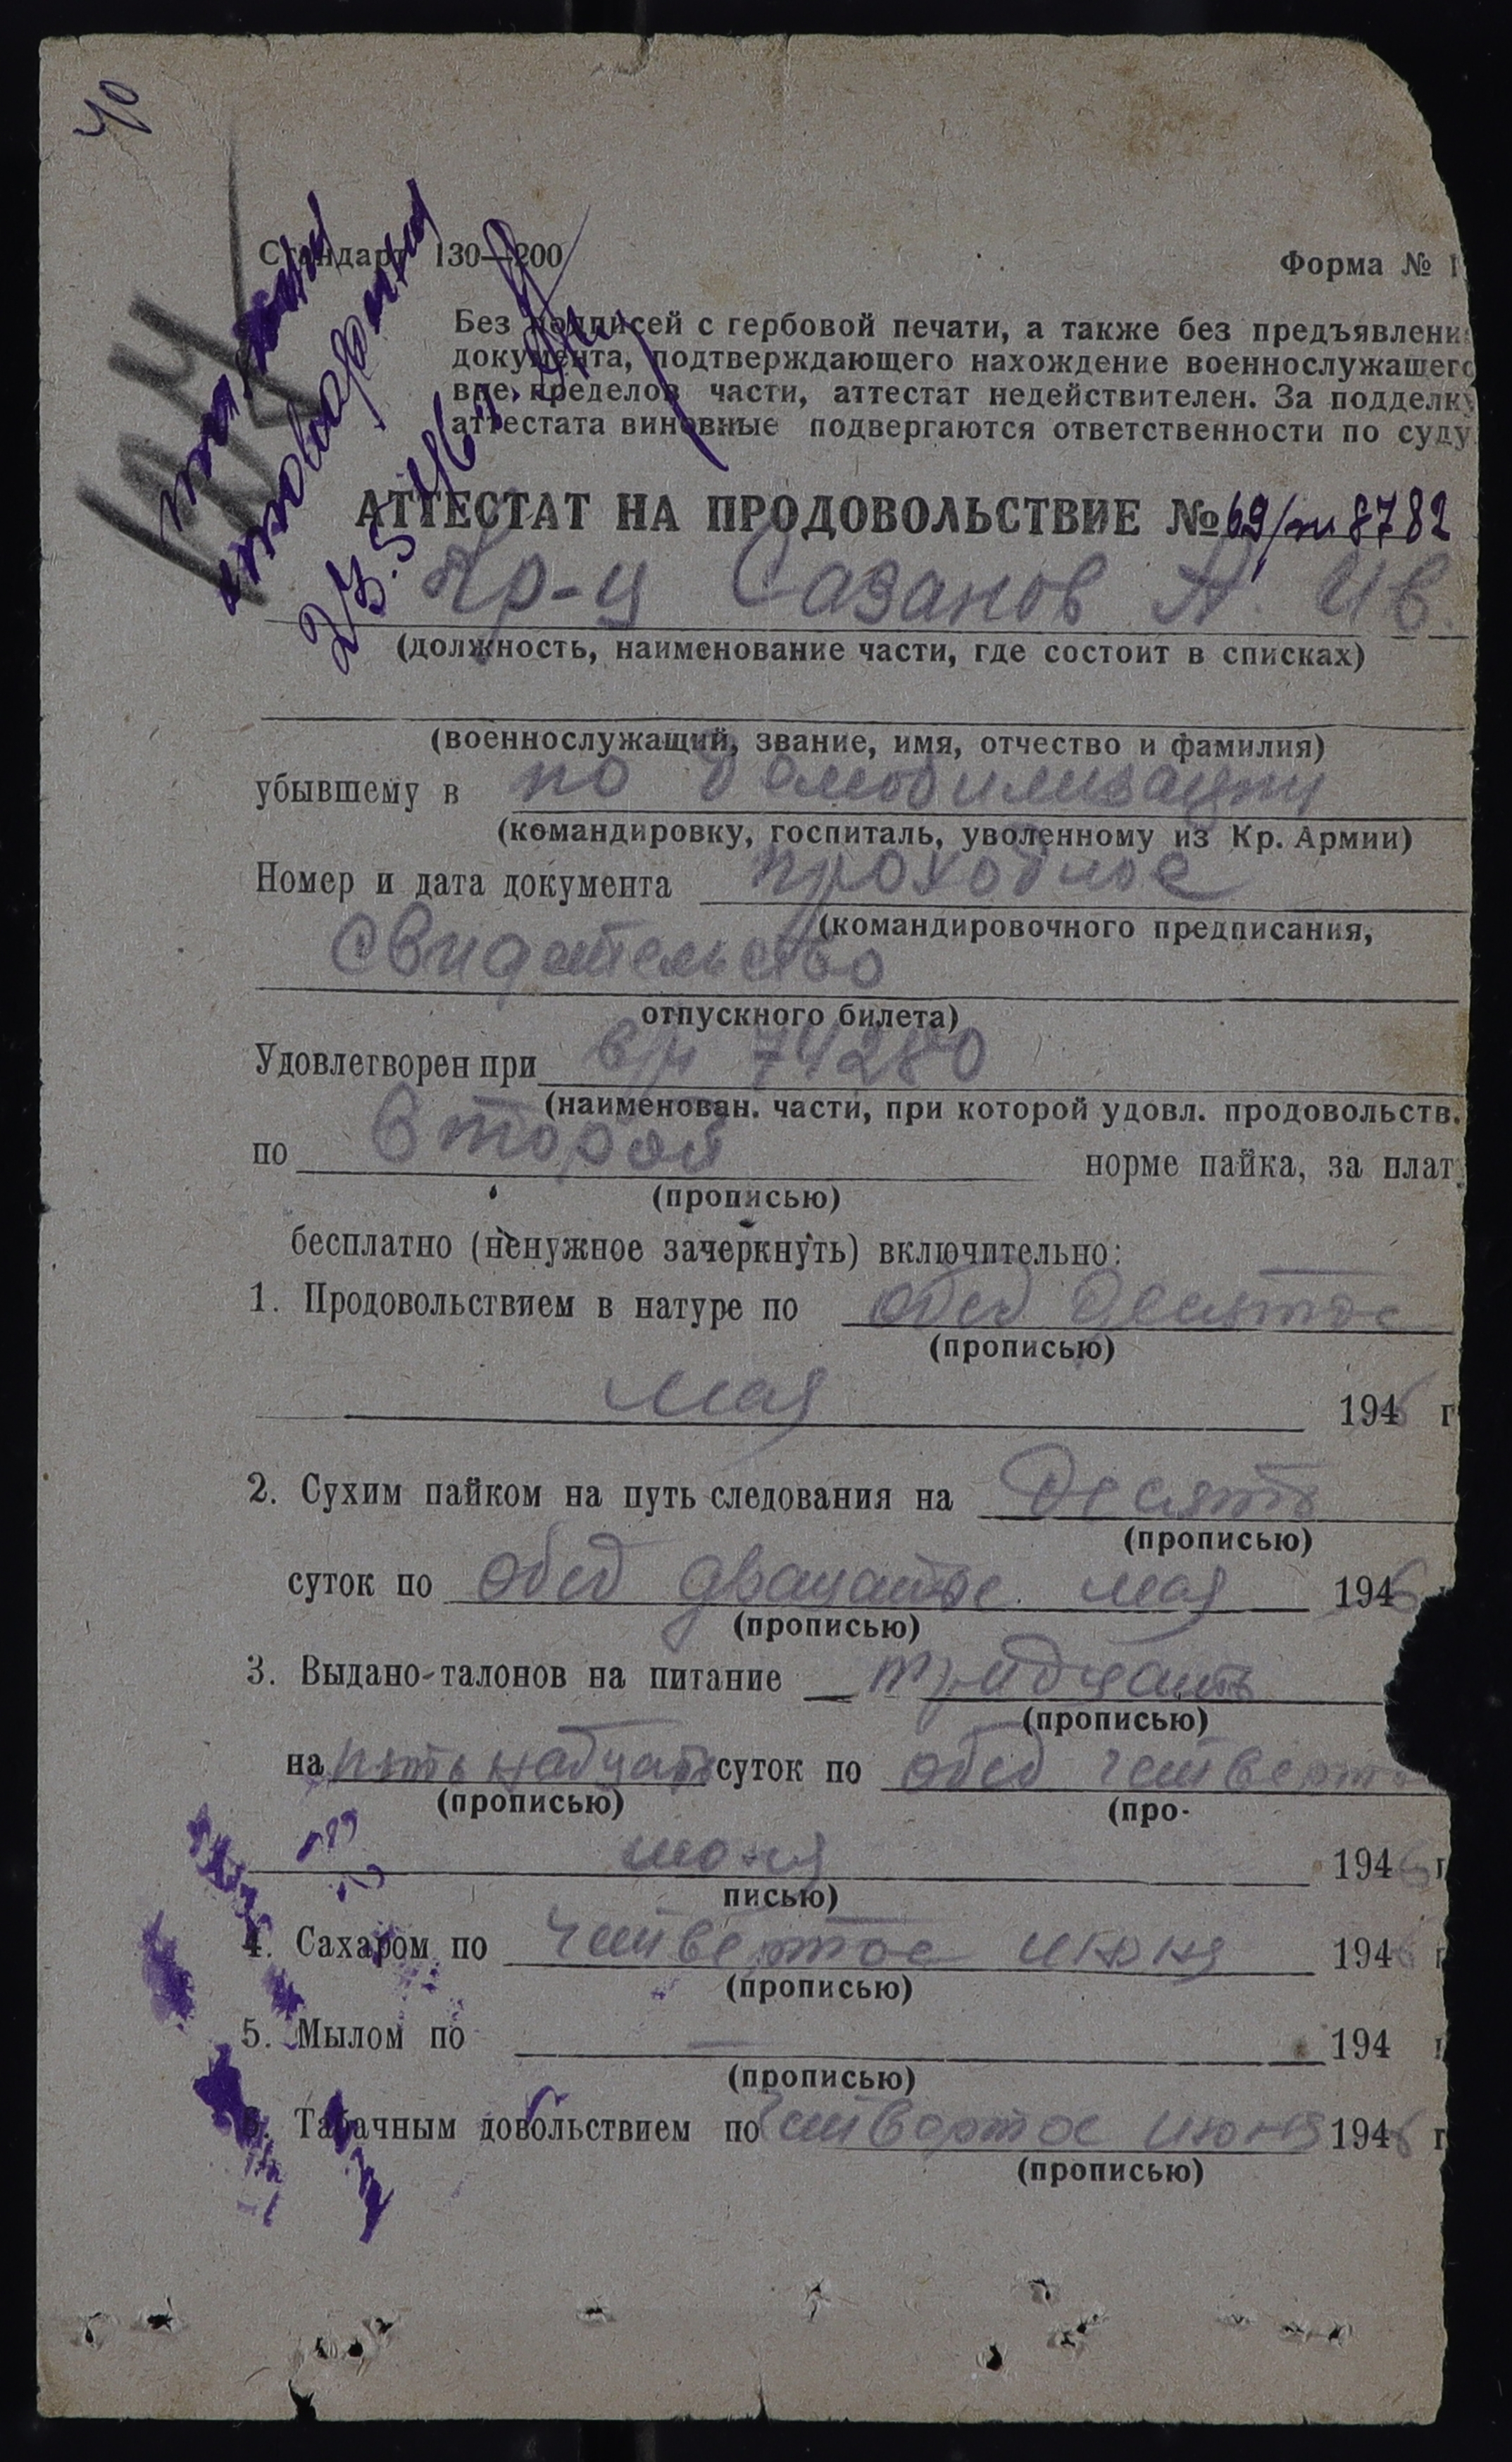 40
Стандарт 130—200
Форма № 1
Без подписей с гербовой печати, а также без предъявлени
документа, подтверждающего нахождение военнослужащего
вне пределов части, аттестат недействителен. За подделку
аттестата виновные подвергаются ответственности по суду
23.5.46г.
АТТЕСТАТ НА ПРОДОВОЛЬСТВИЕ № 69/п 8782
Кр-ц Сазанов А. Ив.
(должность, наименование части, где состоит в списках)
(военнослужащий, звание, имя, отчество и фамилия)
убывшему в по демобилизации
(командировку, госпиталь, уволенному из Кр. Армии)
Номер и дата документа проходное
(командировочного предписания,
свидетельство
отпускного билета)
Удовлетворен при в/ч 74280
(наименован. части, при которой удовл. продовольств.
по второй норме пайка, за плат
(прописью)
бесплатно (ненужное зачеркнуть) включительно:
1. Продовольствием в натуре по обед десятое
(прописью)
мая 1946 г
2. Сухим пайком на путь следования на десять
(прописью)
суток по обед двацатое мая 1946
(прописью)
3. Выдано-талонов на питание тридцать
(прописью)
на пятьнадцать суток по обед четверто
(прописью) (про-
июня 1946 г
писью)
4. Сахаром по четвертое июня 1946 г
(прописью)
5. Мылом по — 194 г
(прописью)
6. Табачным довольствием по четвертое июня 1946 г
(прописью)